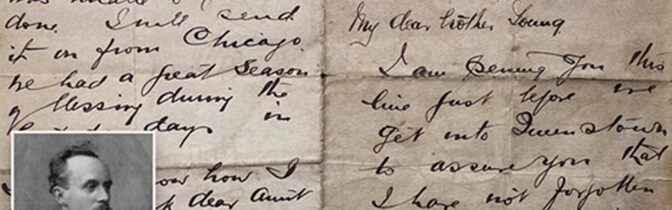 done. I will send
it on from Chicago.
We had a great season
of blessing during the
days in
how I
dear Aunt
My dear brother Young
I am penning you this
line just before we
get into Queenstown
to assure you that
I have not forgotten